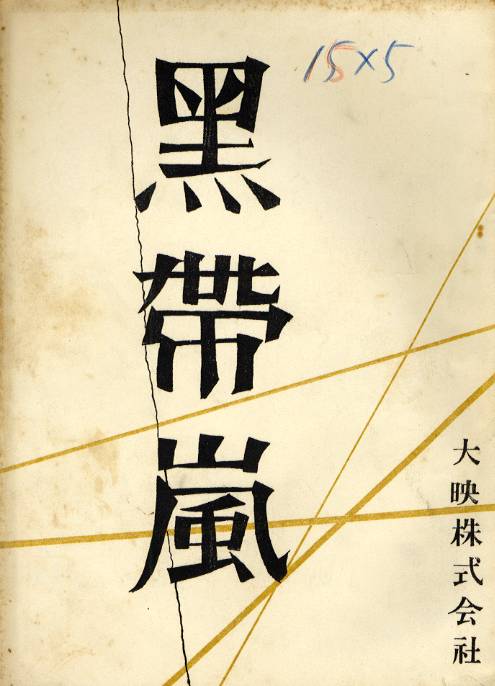 15×5
黑帶嵐
大映株式会社